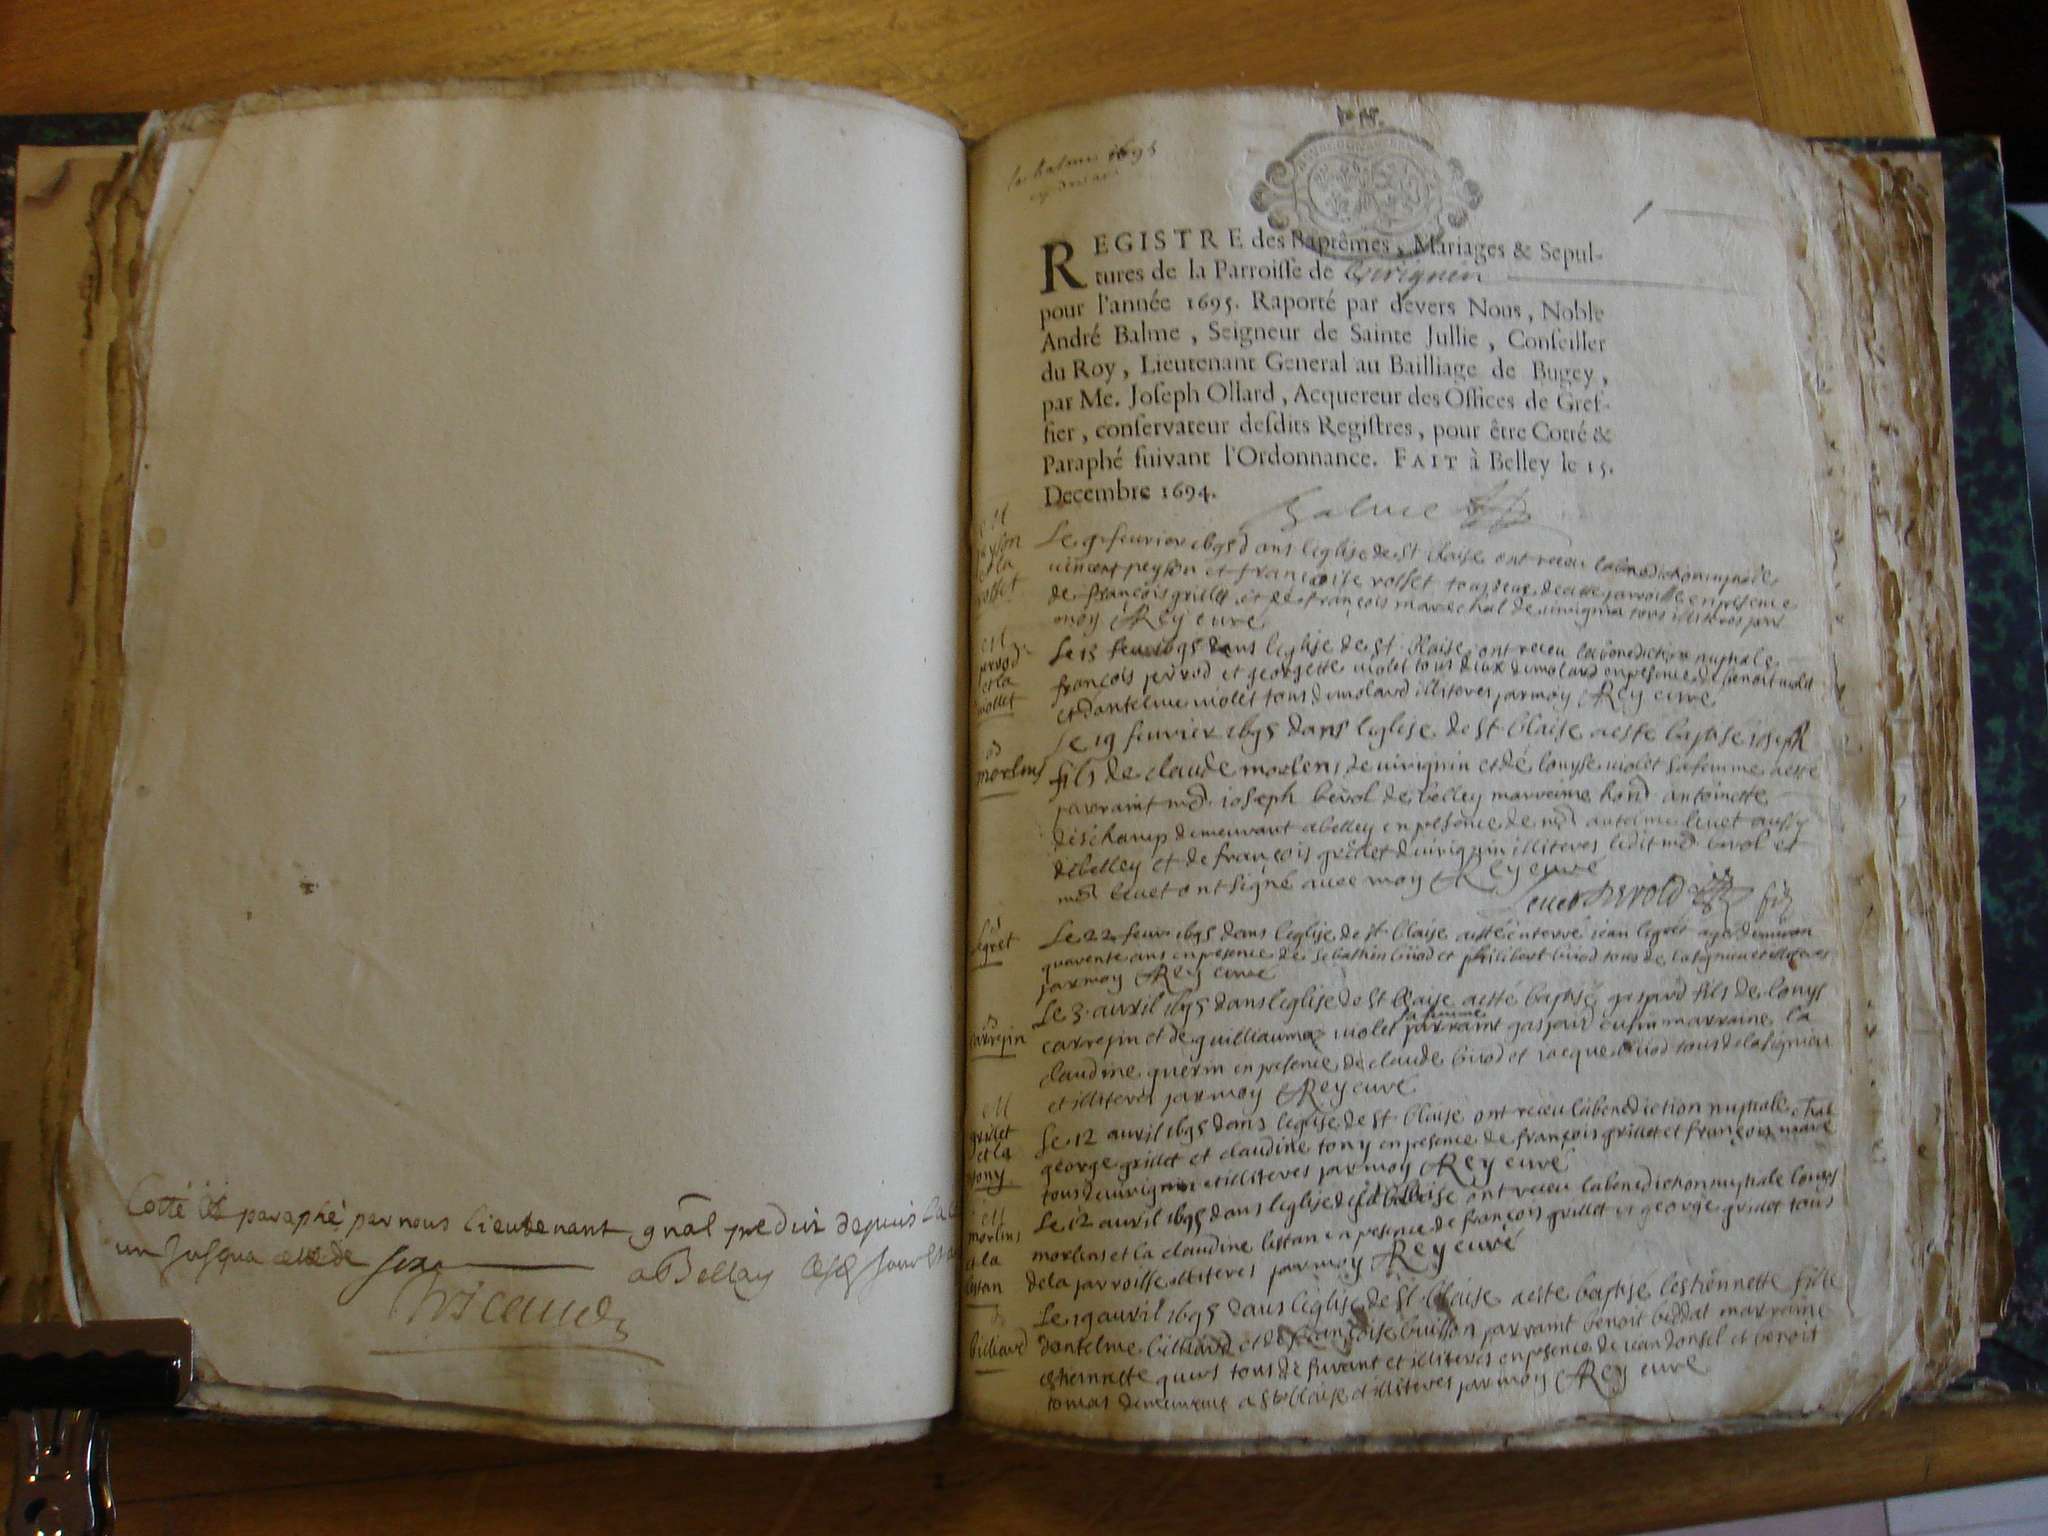 Cotté et paraphé par nous lieutenant gñal predit depuis
un Jusqua
a Bellay
la balme 1695
REGISTRE des Baptêmes, Mariages & Sepul-
tures de la Parroiſſe de Virignin
pour l'année 1695. Raporté par devers Nous, Noble
André Balme, Seigneur de Sainte Jullie, Conſeiller
du Roy, Lieutenant General au Bailliage de Bugey,
par Me. Joſeph Ollard, Acquereur des Offices de Gref-
fier, conſervateur deſdits Regiſtres, pour être Cotté &
Paraphé ſuivant l'Ordonnance. FAIT à Belley le 15.
Decembre 1694.
Balme
peyson
et la
rosset
Le 9 feurier 1695 dans leglise de St Blaise ont receu la benediction nuptiale
uincent peyson et francoise rosset tous deux de cette parroisse en presence
de françois grillet et de françois mareschal de uirignin tous illiteres par
moy Rey curé
perrod
et la
uiollet
Le 15 feur 1695 dans leglise de St Blaise ont receu la benediction nuptiale
françois perrod et georgette uiolet tous deux du molard en presence de benoit uiolet
et dantelme uiolet tous du molard illiteres par moy Rey curé
morlens
Le 19 feurier 1695 dans leglise de St Blaise a esté baptisé ioseph
fils de claude morlens de uirignin et de louyse uiolet sa femme a esté
parraint mr. ioseph berol de belley marreine hon. antoinette
deschamp demeurant a belley en presence de mr antoine leuet aussy
de belley et de françois grillet de uirignin illiteres ledit mr berol et
mr leuet ont signé auec moy Rey curé
Leuet
legret
Le 22 feur 1695 dans leglise de St Blaise a esté enterré iean legret agé denuiron
quarente ans en presence de sebastien biuod et philibert biuod tous de
par moy Rey curé
carrepin
Le 3 auril 1695 dans leglise de St Blaise a esté baptisé gaspard fils de louys
sa femme
carrepin et de guilliauma uiolet parraint gaspard cusin marraine la
claudine guerin en presence de claude biuod et iacque biuod tous de
et illiteres par moy Rey curé
grillet
et la
tony
Le 12 auril 1695 dans leglise de St Blaise ont receu la benediction nuptiale
chal
george grillet et claudine tony en presence de françois grillet et françois mare
tous de uirignin et illiteres par moy Rey curé
morlens
et la
listan
Le 12 auril 1695 dans leglise de St Blaise ont receu la benediction nuptiale louys
morlens et la claudine listan en presence de françois grillet et george grillet tous
de la parroisse illiteres par moy Rey curé
billiard
Le 19 auril 1695 dans leglise de St Blaise a esté baptisé lestiennette fille
dantelme billiard et de françoise buisson parraint benoit marraine
estiennette tous de et illiteres en presence de iean et benoit
tomas demeurant a St Blaise et illiteres par moy Rey curé